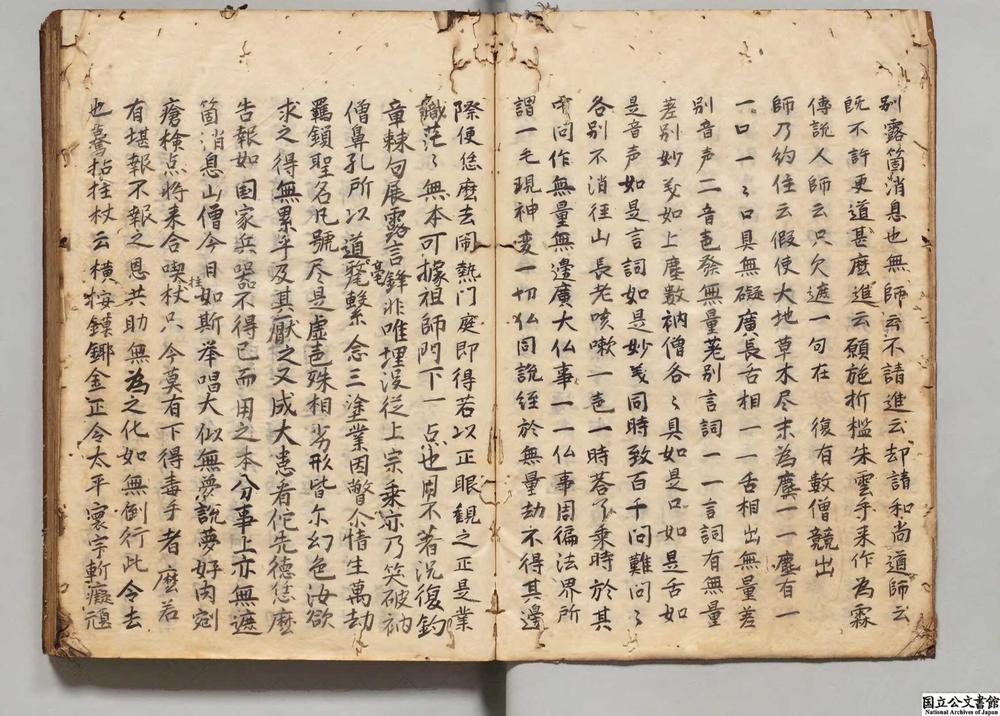 別露箇消息也無師云不請進云却請和尚道師云
既不許更道甚麽進云願施折檻朱雲手来作為霖
傳說人師云只欠遮一句在 復有數僧競出
師乃約住云假使大地草木尽末為塵一一塵有一
一口一ミ口具無礙廣長舌相一一舌相出無量差
別音声二音声發無量差別言詞一一言詞有無量
差別妙义如上塵數衲僧各ミ具如是口如是舌如
是音声如是言詞如是妙义同時致百千問難問ミ
各別不消径山長老咳嗽一声一時荅了乘時於其
中問作無量無邊廣大仏事一一仏事周徧法界所
謂一毛現神変一切仏同說經於無量劫不得其邊
際便恁麽去閙熱門庭即得若以正眼観之正是業
識茫ミ無本可據祖師門下一点也用不著況復鈎
章棘句展露言鋒非唯埋没従上宗乘亦乃笑破衲
僧鼻孔所以道毫氂繫念三塗業因瞥尒情生萬劫
羈鎖聖名凡號尽是虚声殊相劣形皆尓幻色汝欲
求之得無累乎及其厭之又成大患看佗先德恁麽
告報如国家兵噐不得已而用之本分事上亦無遮
箇消息山僧今日如斯举唱大似無夢說夢好肉剜
瘡検点将来合喫拄杖只今莫有下得毒手者麽若
有堪報不報之恩共助無為之化如無倒行此令去
也驀拈拄杖云横按鏌鎁金正令太平寰宇斬癡頑
国立公文書館
National Archives of Japan